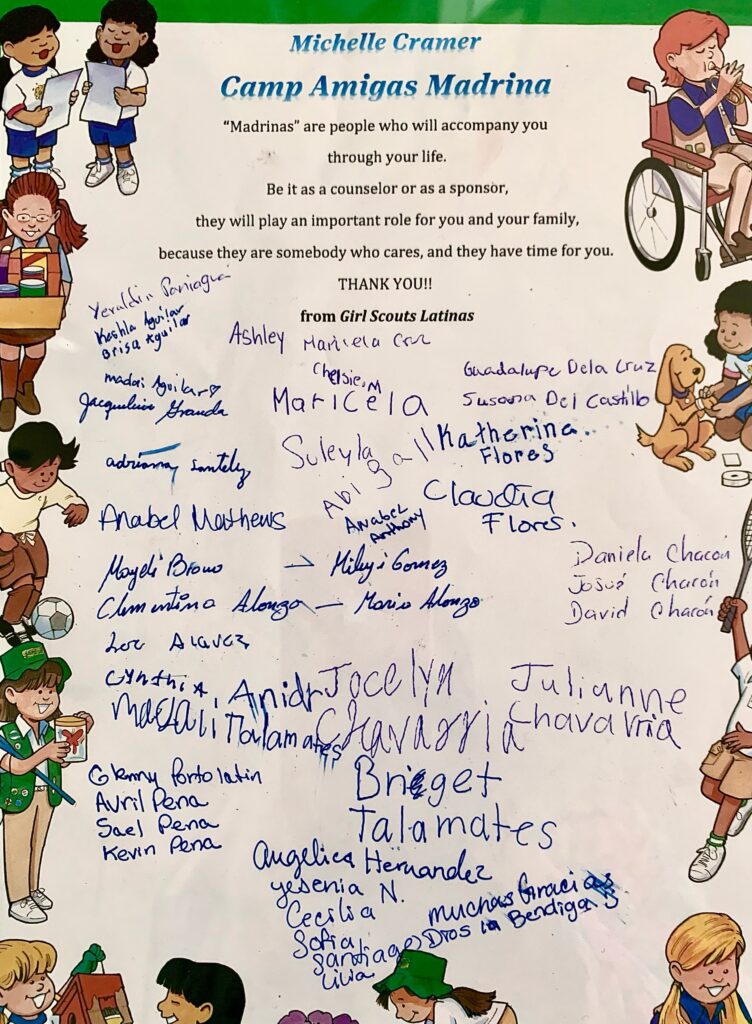 Michelle Cramer
Camp Amigas Madrina
“Madrinas” are people who will accompany you
through your life.
Be it as a counselor or as a sponsor,
they will play an important role for you and your family,
because they are somebody who cares, and they have time for you.
THANK YOU!!
from Girl Scouts Latinas
Yeraldin Paniagua
Keshla Aguilar
Brisa Aguilar
Ashley
Maricela Cruz
Chelsie.M
Guadalupe Dela Cruz
Susana Del Castillo
Aguilar
Jacqueline Granda
Maricela
Suleyla
Abigail
Katherina
Flores
Anabel Mathews
Anabel
Anthony
Claudia
Flores.
Daniela Chacón
Josué Chacón
David Chacón
Mayeli Bravo → Mileyi Gomez
Clementina Alonzo — Mario Alonzo
Cynthia
Magali Talamates
Jocelyn
Chavarria
Julianne
Chavarria
Glenny Portolatin
Avril Pena
Sael Pena
Kevin Pena
Briget
Talamates
Angelica Hernandez
yesenia N.
Cecilia
Sofia
Santiago
Lilia
muchas Gracias
Dios la Bendiga